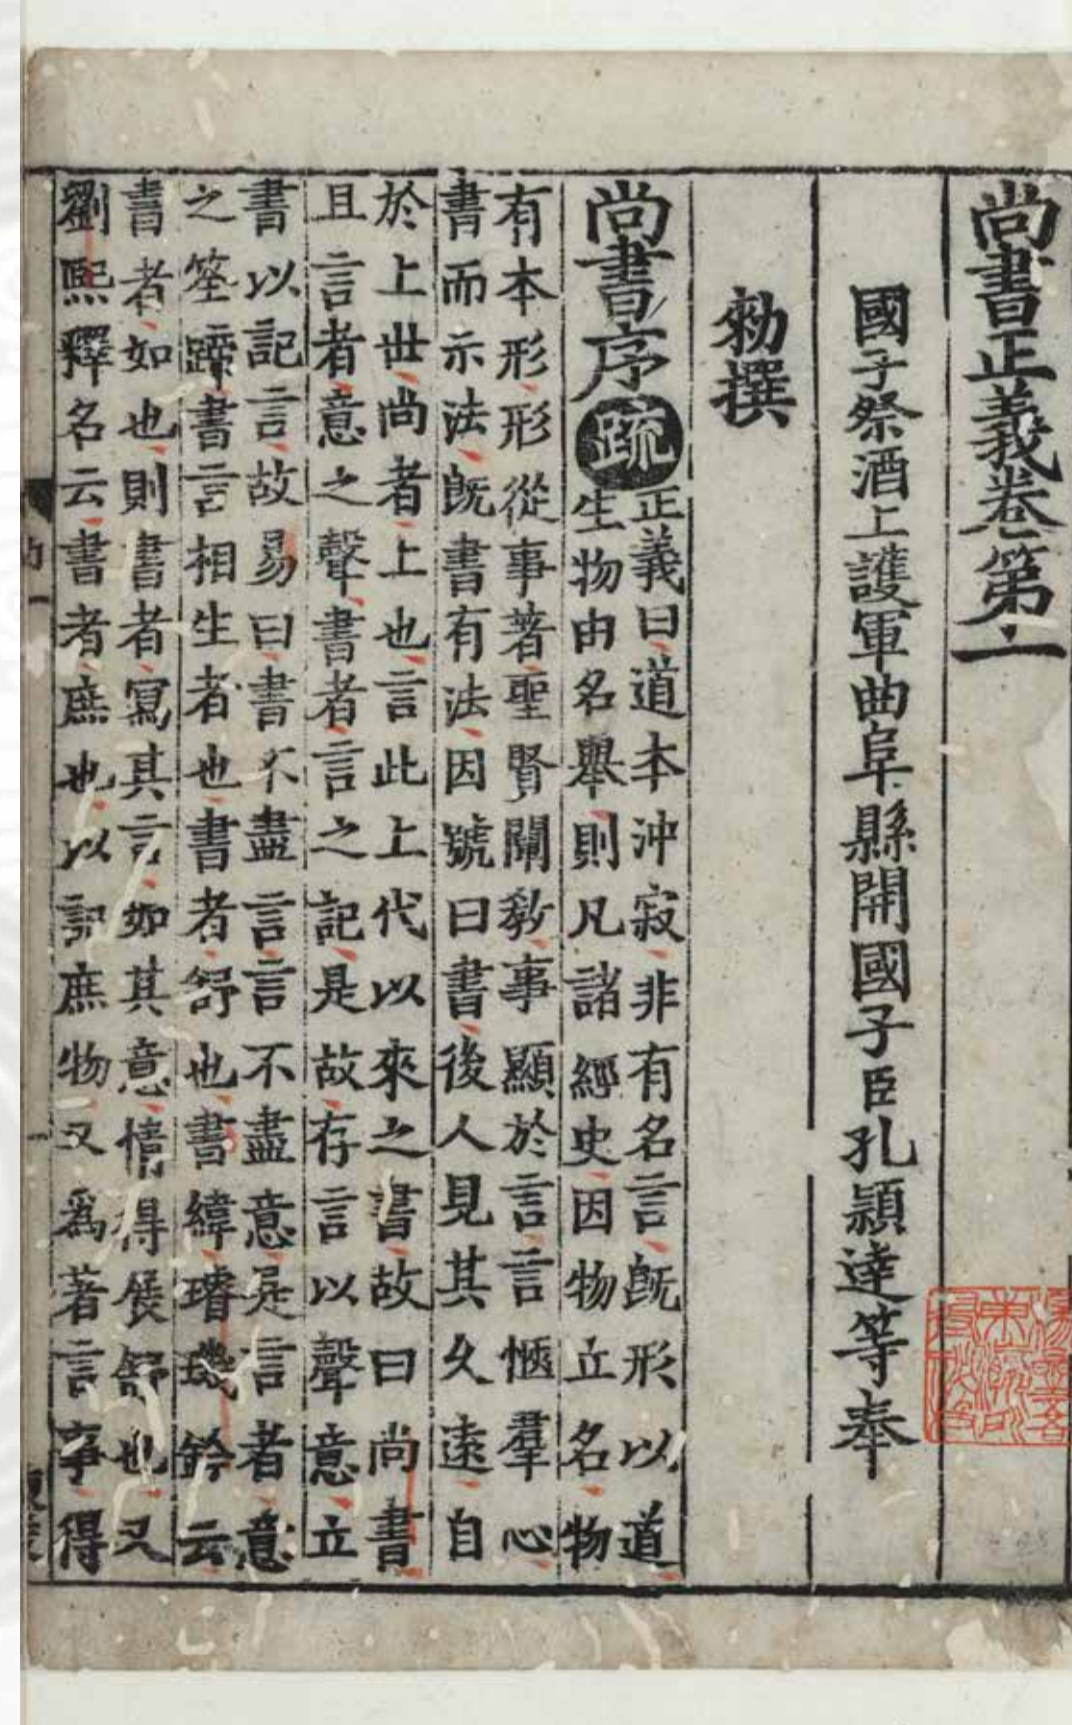 尚書正義卷第一
國子祭酒上護軍曲阜縣開國子臣孔穎達等奉
勑撰
尚書序
疏
正義曰道本沖寂非有名言旣形以道
生物由名舉則凡諸經史因物立名物
有本形形從事著聖賢闡敎事顯於言言愜羣心
書而示法旣書有法因號曰書後人見其久遠自
於上世尚者上也言此上代以來之書故曰尚書
且言者意之聲書者言之記是故存言以聲意立
書以記言故易曰書不盡言言不盡意是言者意
之筌蹄書言相生者也書者舒也書緯璿璣鈐云
書者如也則書者寫其言如其意情得展舒也又
劉熙釋名云書者庶也以記庶物又爲著言事得